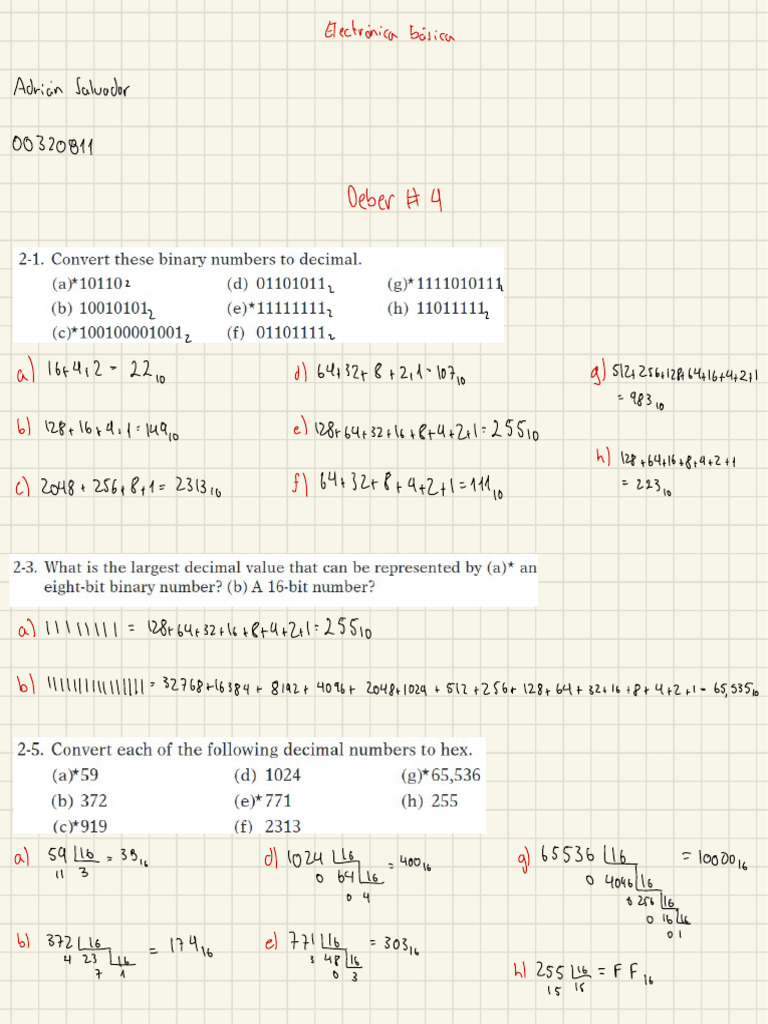 Electrónica básica
Adrián Salvador
00320811
Deber # 4
2-1. Convert these binary numbers to decimal.
(a)*10110₂ (d) 01101011₂ (g)*1111010111₂
(b) 10010101₂ (e)*11111111₂ (h) 11011111₂
(c)*100100001001₂ (f) 01101111₂
a) 16+4+2 = 22₁₀ d) 64+32+8+2+1=107₁₀ g) 512+256+128+64+16+4+2+1
= 983₁₀
b) 128+16+4+1=149₁₀ e) 128+64+32+16+8+4+2+1=255₁₀ h) 128+64+16+8+4+2+1
= 223₁₀
c) 2048+256+8+1= 2313₁₀ f) 64+32+8+4+2+1=111₁₀
2-3. What is the largest decimal value that can be represented by (a)* an
eight-bit binary number? (b) A 16-bit number?
a) 11111111 = 128+64+32+16+8+4+2+1=255₁₀
b) 1111111111111111 = 32768+16384+ 8192+ 4096+ 2048+1024 +512 +256+ 128+ 64+ 32+16 +8+4+2+1= 65,535₁₀
2-5. Convert each of the following decimal numbers to hex.
(a)*59 (d) 1024 (g)*65,536
(b) 372 (e)*771 (h) 255
(c)*919 (f) 2313
a) 59 16 = 39₁₆ d) 1024 16 = 400₁₆ g) 65536 16 = 10000₁₆
11 3 0 64 16 0 4096 16
0 4 0 256 16
0 16 16
0 1
b) 372 16 = 174₁₆ e) 771 16 = 303₁₆
4 23 16 3 48 16
7 1 0 3
h) 255 16 = FF₁₆
15 15